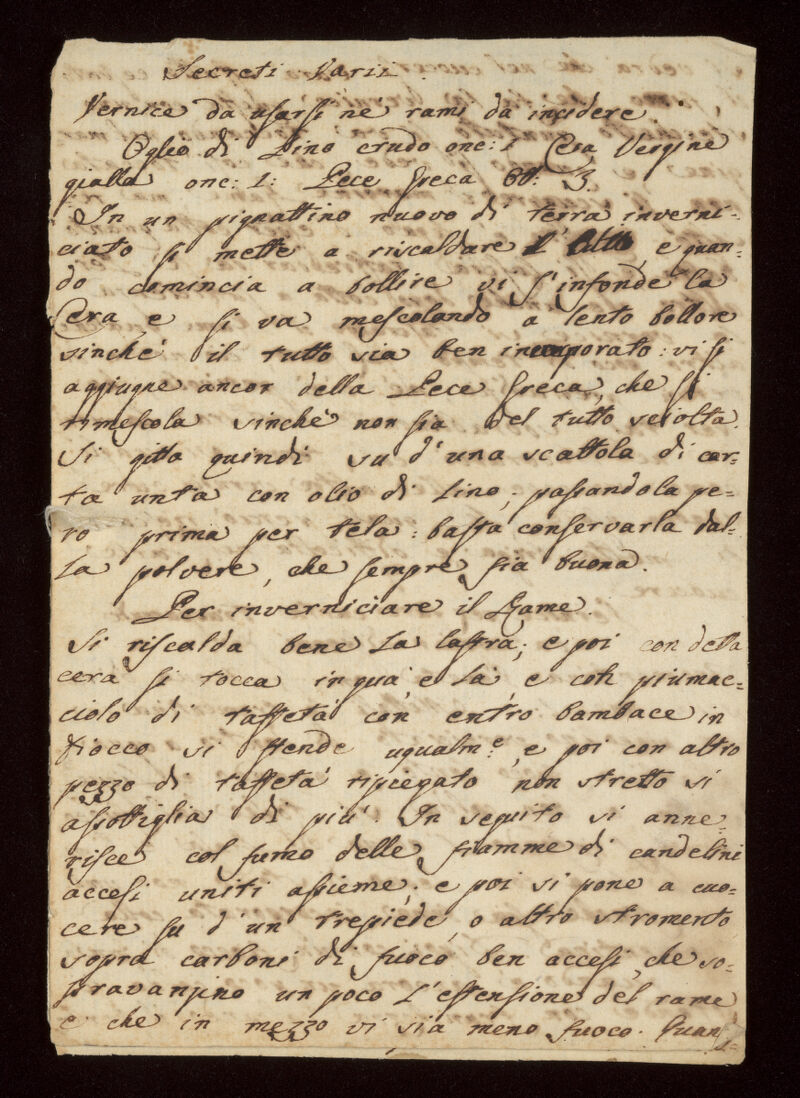 Secreti Varii.
Vernice da usarsi ne rami da incidere.
Oglio di Lino crudo onc: 1 Cera Vergine
gialla onc: 1: Pece Greca 3.
In un pignattino nuovo di terra inverni-
ciato si mette a riscaldare e quan-
do comincia a bollire vi s'infonde la
Cera e si va mescolando a lento bollore
sinche il tutto sia ben incorporato: vi si
aggiugne ancor della Pece Greca, che si
rimescola sinche non sia del tutto sciolta.
Si gitta quindi su d'una scattola di car-
ta unta con olio di Lino; passandola pe-
ro prima per tela: basta conservarla dal-
la polvere, che sempre sia buona.
Per inverniciare il Rame.
Si riscalda bene la lastra; e poi con detta
cera si tocca in qua, e la, e col piumac-
ciolo di taffeta con entro bambace in
fiocco si stende ugualm.e, e poi con altro
pezzo di taffeta ripiegato non stretto si
assottiglia di più. In seguito si anne-
risce col fumo delle fiamme di candelini
accesi uniti assieme; e poi si pone a cuo-
cere su d'un trepiede, o altro stromento
sopra carboni di fuoco ben accesi, che so-
pravanzino un poco l'estensione del rame
e che in mezzo vi sia meno fuoco. Quan-